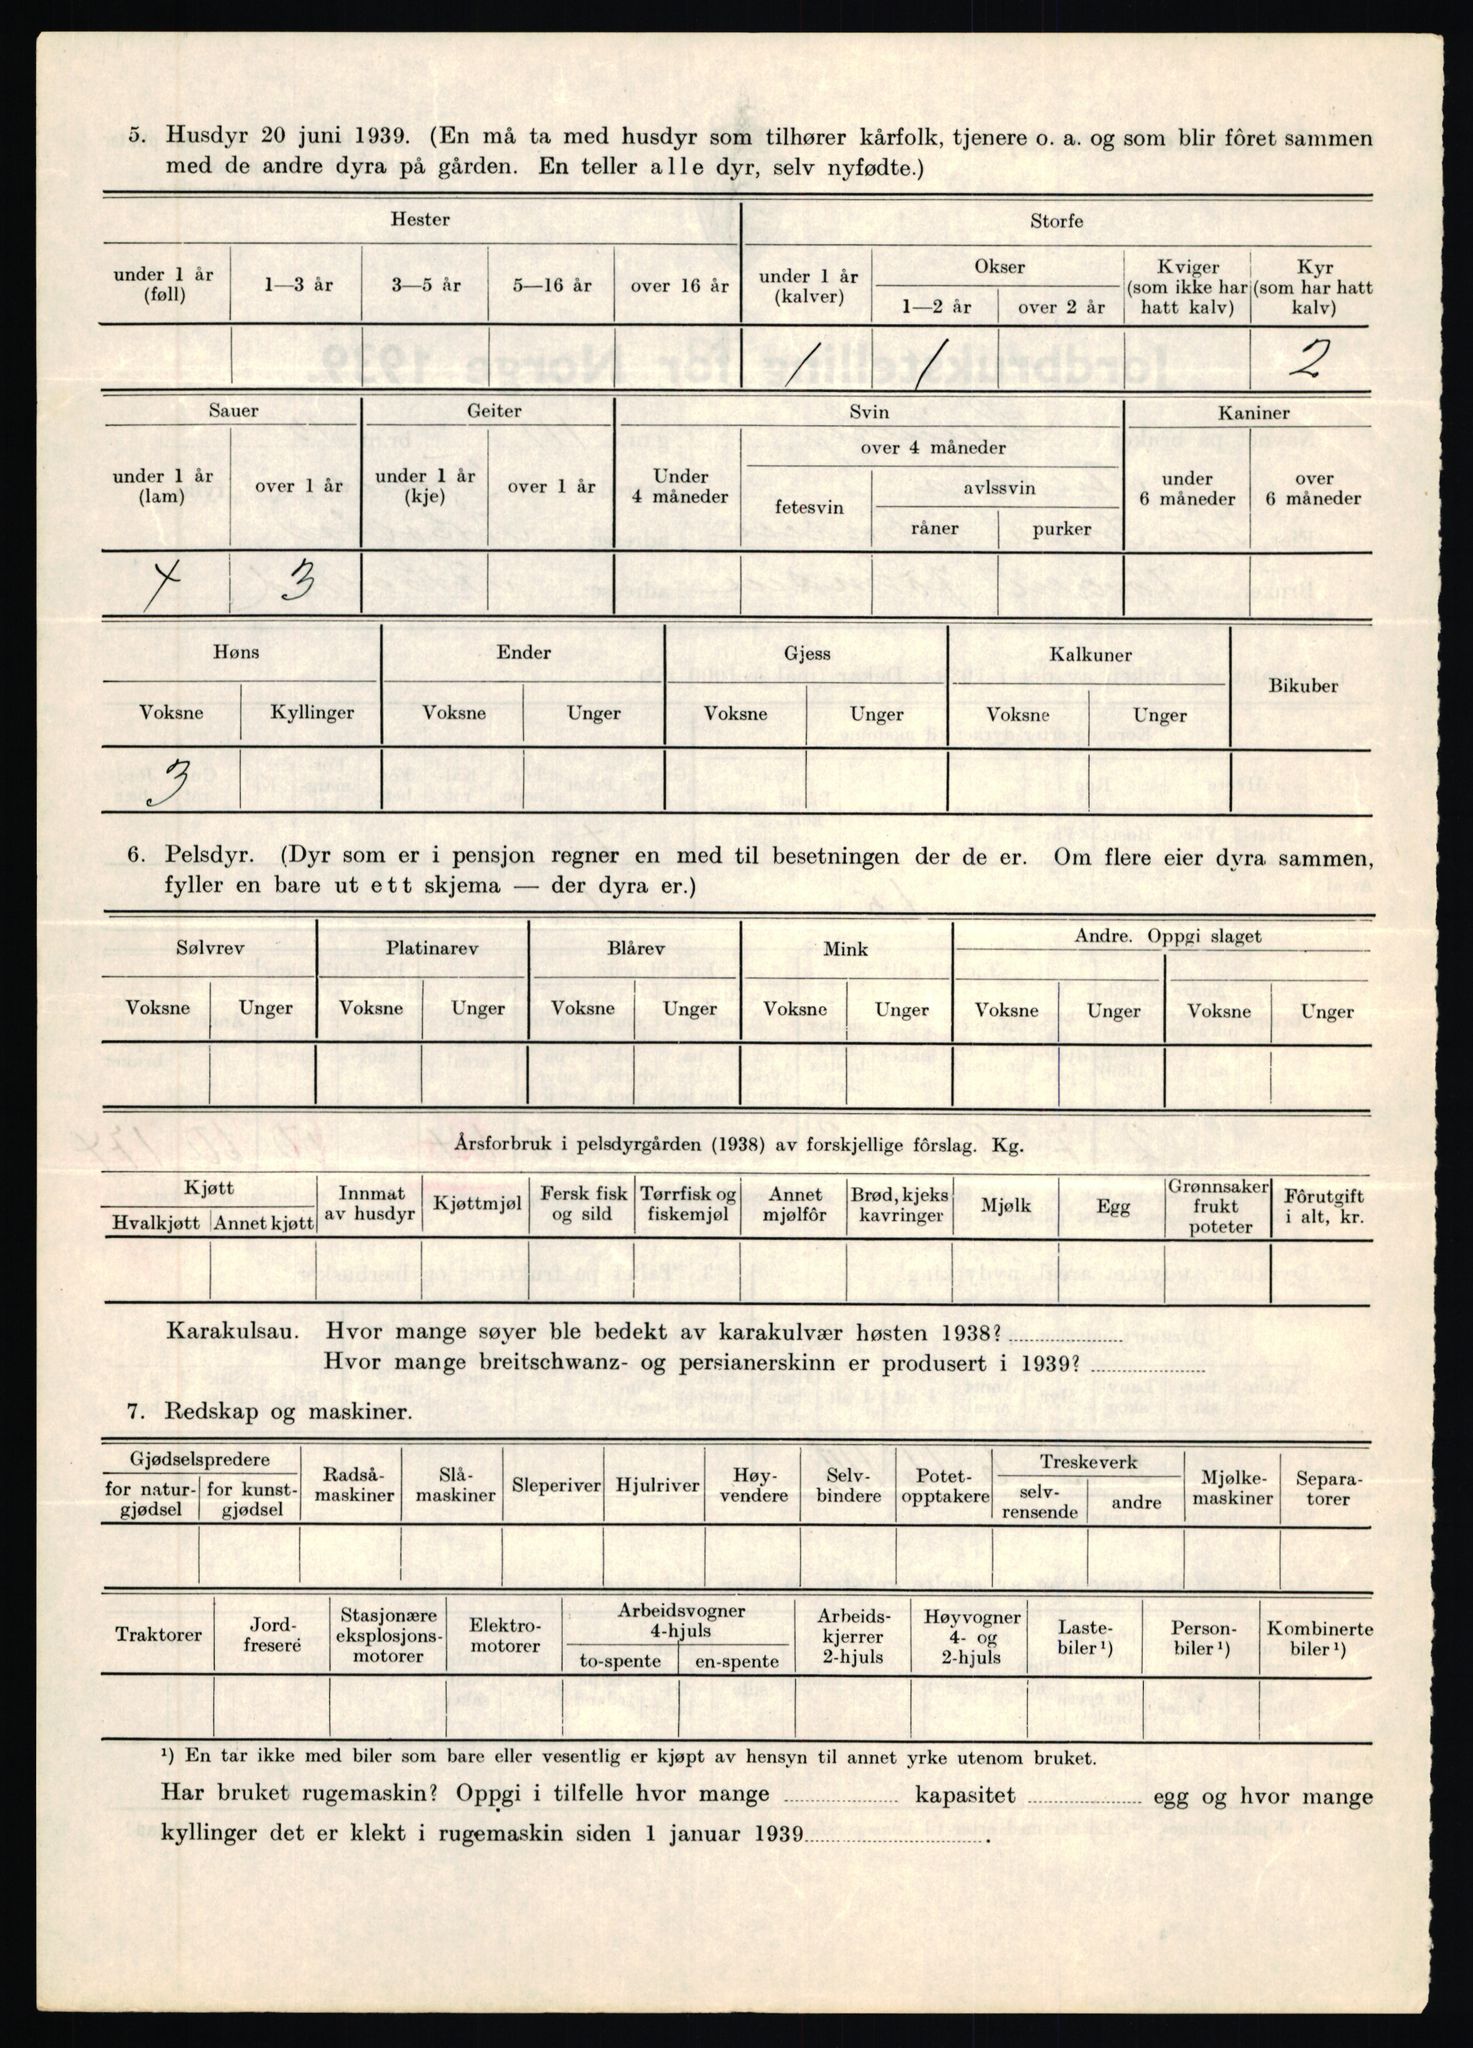 5. Husdyr 20 juni 1939. (En må ta med husdyr som tilhører kårfolk, tjenere o. a. og som blir fôret sammen
med de andre dyra på gården. En teller alle dyr, selv nyfødte.)
Hester Storfe
under 1 år (føll) 1—3 år 3—5 år 5—16 år over 16 år under 1 år (kalver) Okser 1—2 år over 2 år Kviger (som ikke har hatt kalv) Kyr (som har hatt kalv)
1 1 2
Sauer Geiter Svin Kaniner
under 1 år (lam) over 1 år under 1 år (kje) over 1 år Under 4 måneder over 4 måneder fetesvin avlssvin råner purker under 6 måneder over 6 måneder
4 3
Høns Ender Gjess Kalkuner Bikuber
Voksne Kyllinger Voksne Unger Voksne Unger Voksne Unger
3
6. Pelsdyr. (Dyr som er i pensjon regner en med til besetningen der de er. Om flere eier dyra sammen,
fyller en bare ut ett skjema — der dyra er.)
Sølvrev Platinarev Blårev Mink Andre. Oppgi slaget
Voksne Unger Voksne Unger Voksne Unger Voksne Unger Voksne Unger Voksne Unger
Årsforbruk i pelsdyrgården (1938) av forskjellige fôrslag. Kg.
Kjøtt Hvalkjøtt Annet kjøtt Innmat av husdyr Kjøttmjøl Fersk fisk og sild Tørrfisk og fiskemjøl Annet mjølfôr Brød, kjeks kavringer Mjølk Egg Grønnsaker frukt poteter Fôrutgift i alt, kr.
Karakulsau. Hvor mange søyer ble bedekt av karakulvær høsten 1938?
Hvor mange breitschwanz- og persianerskinn er produsert i 1939?
7. Redskap og maskiner.
Gjødselspredere for natur-gjødsel for kunst-gjødsel Radså-maskiner Slå-maskiner Sleperiver Hjulriver Høy-vendere Selv-bindere Potet-opptakere Treskeverk selv-rensende andre Mjølke-maskiner Separa-torer
Traktorer Jord-freseré Stasjonære eksplosjons-motorer Elektro-motorer Arbeidsvogner 4-hjuls to-spente en-spente Arbeids-kjerrer 2-hjuls Høyvogner 4- og 2-hjuls Laste-biler ¹) Person-biler ¹) Kombinerte biler ¹)
¹) En tar ikke med biler som bare eller vesentlig er kjøpt av hensyn til annet yrke utenom bruket.
Har bruket rugemaskin? Oppgi i tilfelle hvor mange kapasitet egg og hvor mange
kyllinger det er klekt i rugemaskin siden 1 januar 1939.